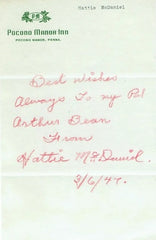 Hattie McDaniel
Pocono Manor Inn
POCONO MANOR, PENNA.
Best wishes
Always To my Pal
Arthur Bean
From
Hattie McDaniel.
3/6/47.